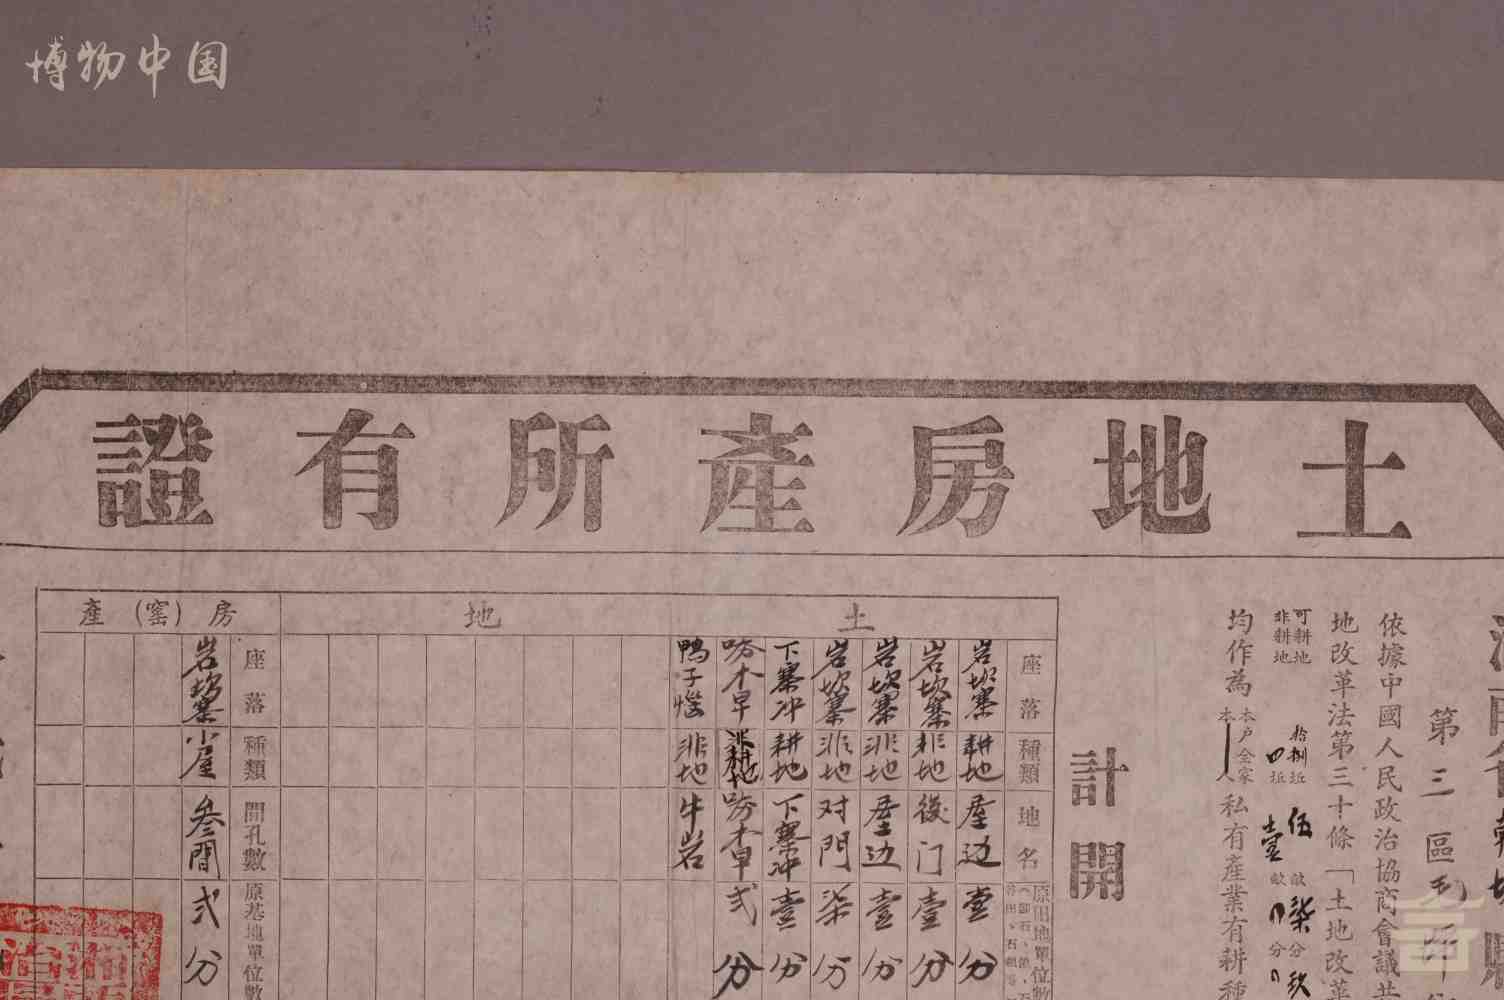 博物中国
土地房產所有證
第三區
依據中國人民政治協商會議共
地改革法第三十條「土地改革
可耕地 拾捌坵 伍畝柒分玖
非耕地 四坵 壹畝 分
均作為本戶全家本人私有產業有耕種
計開
土地
座落 種類 地名 原田地單位數
岩坎寨 耕地 屋边 壹分
岩坎寨 非地 後门 壹分
岩坎寨 非地 屋边 壹分
岩坎寨 非地 对門 柒分
下寨冲 耕地 下寨冲 壹分
木早 非耕地 木早 弍分
鴨子 非地 牛岩
房(窰)產
座落 種類 間孔數 原基地單位數
岩坎寨 屋 叁間 弍分